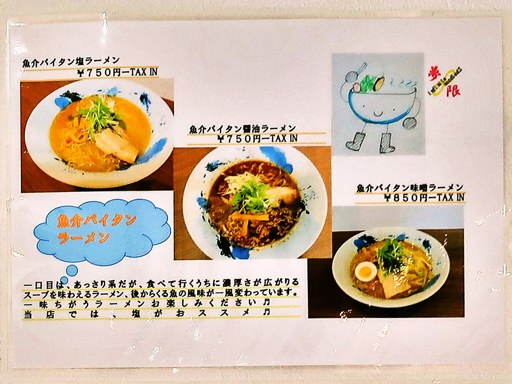 魚介パイタン塩ラーメン
￥７５０円ーTAX IN
魚介パイタン醤油ラーメン
￥７５０円ーTAX IN
無限
魚介パイタン味噌ラーメン
￥８５０円ーTAX IN
魚介パイタン
ラーメン
一口目は、あっさり系だが、食べて行くうちに濃厚さが広がりる
スープを味わえるラーメン、後からくる魚の風味が一風変わっています。
一味ちがうラーメンお楽しみください♬
当店では、塩がおススメ♬